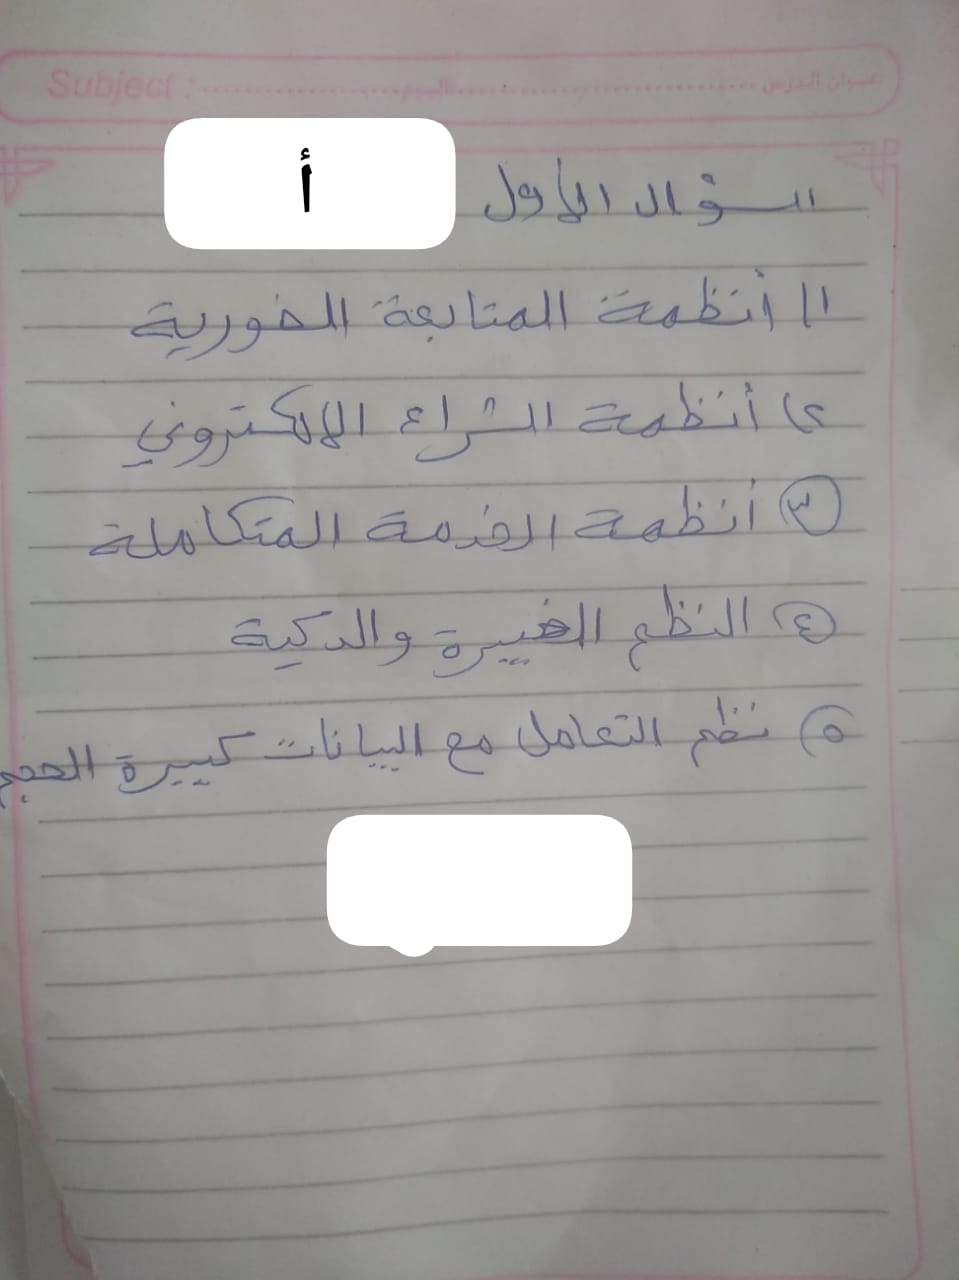 Subject : اليوم عنوان الدرس
السؤال الأول أ
١) أنظمة المتابعة الفورية
٢) أنظمة الشراء الإلكتروني
٣) أنظمة الخدمة المتكاملة
٤) النظم الخبيرة والذكية
٥) نظم التعامل مع البيانات كبيرة الحجم